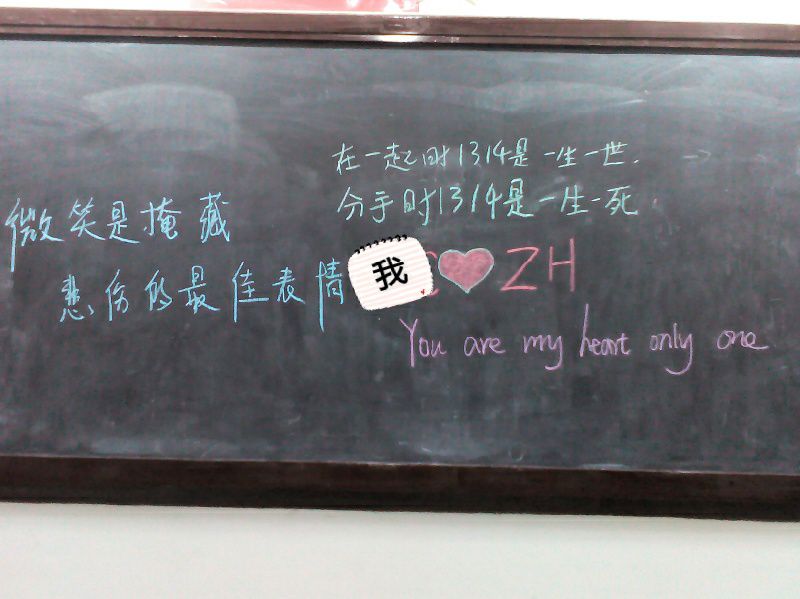 微笑是掩藏
悲伤的最佳表情
在一起时1314是一生一世.
分手时1314是一生一死.
我 ZH
You are my heart only one